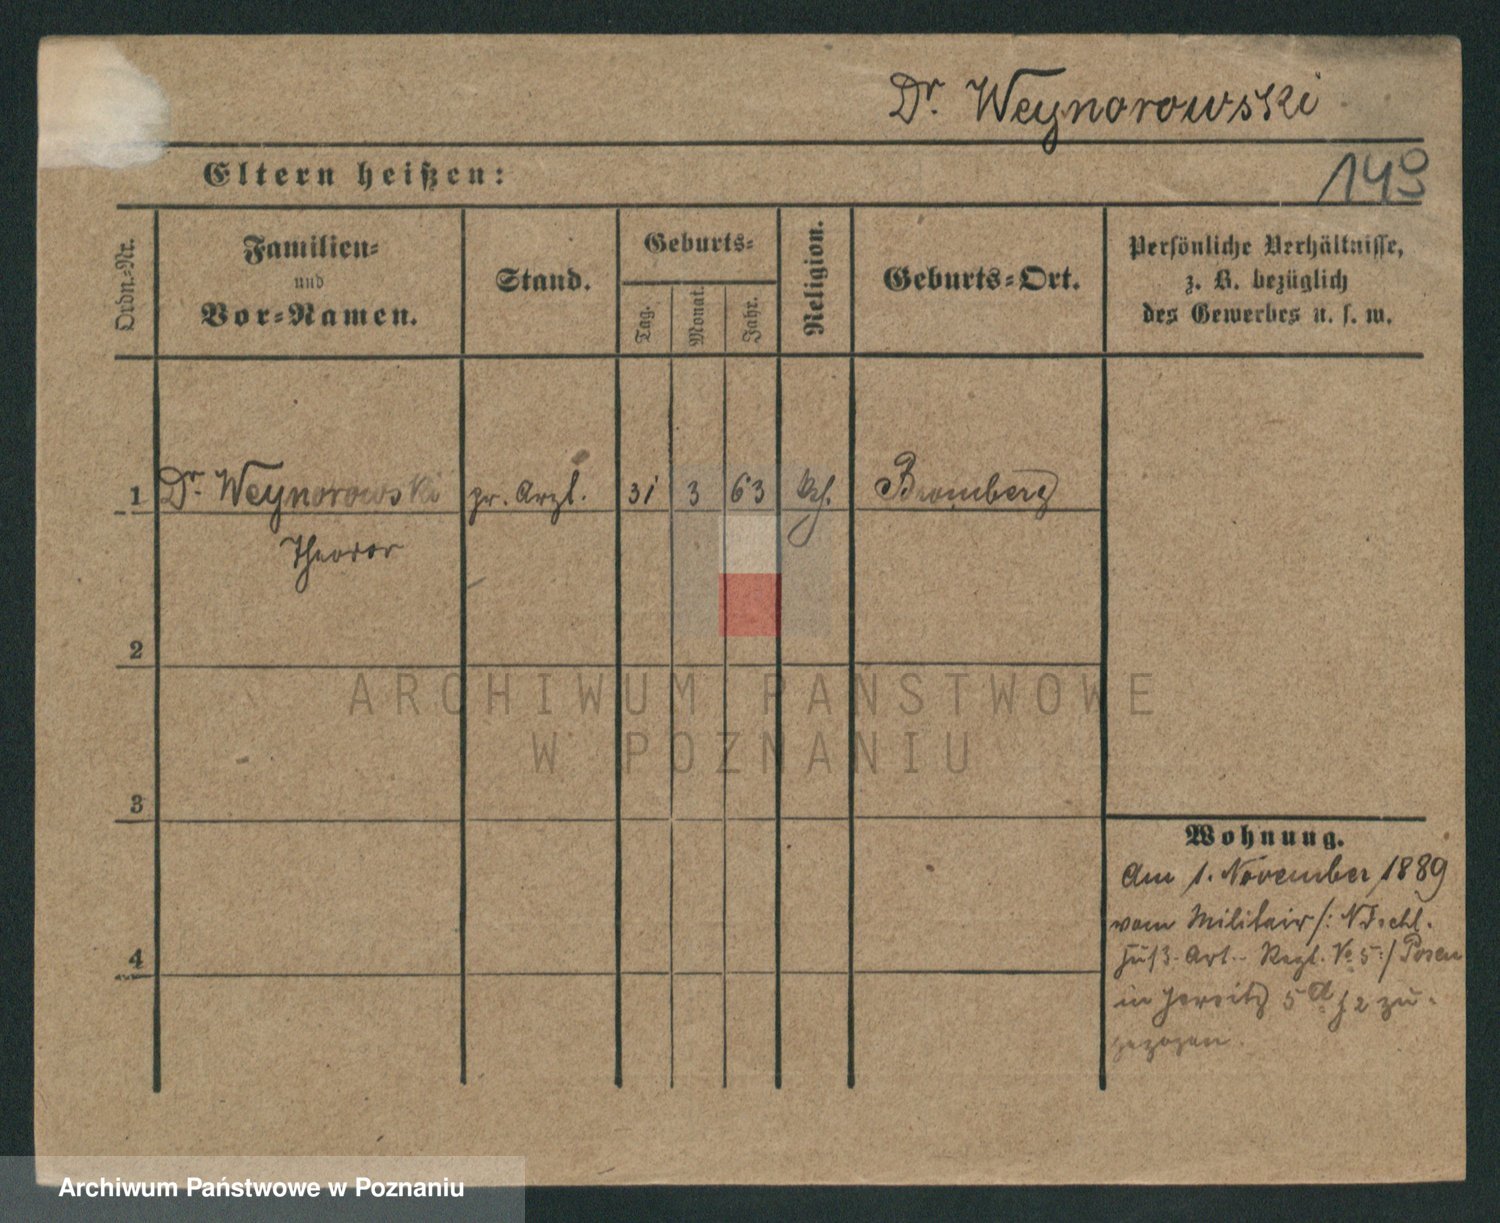 Dr. Weynorowski
Eltern heißen:
149
Ordn.-Nr.
Familien-
und
Vor-Namen.
Stand.
Geburts-
Tag.
Monat.
Jahr.
Religion.
Geburts-Ort.
Persönliche Verhältnisse,
z. B. bezüglich
des Gewerbes u. s. w.
1 Dr. Weynorowski pr. Arzt. 31 3 63 Bromberg
Theodor
2
ARCHIWUM PAŃSTWOWE
W POZNANIU
3
Wohnung.
Am 1. November 1889
vom Militair /: Ndschl.
Fuß-Art.- Regt. No 5 :/ Posen
in Jersitz 5 zu-
gezogen.
4
Archiwum Państwowe w Poznaniu